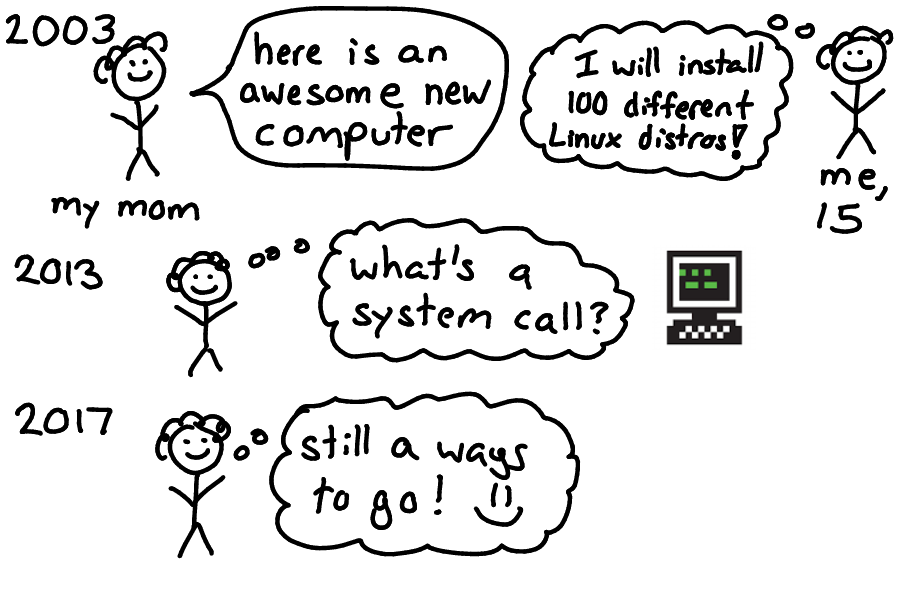 2003
here is an
awesome new
computer
I will install
100 different
Linux distros!
my mom
me,
15
2013
what's a
system call?
2017
still a ways
to go! :)